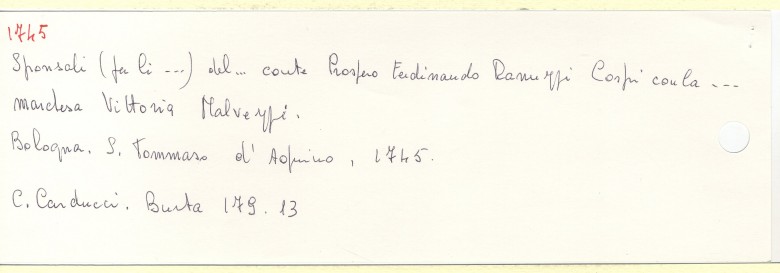 1745
Sponsali (per li ...) del... conte Prospero Ferdinando Ranuzzi Cospi con la ...
marchesa Vittoria Malvezzi.
Bologna. S. Tommaso d'Aquino, 1745.
C. Carducci. Busta 179. 13